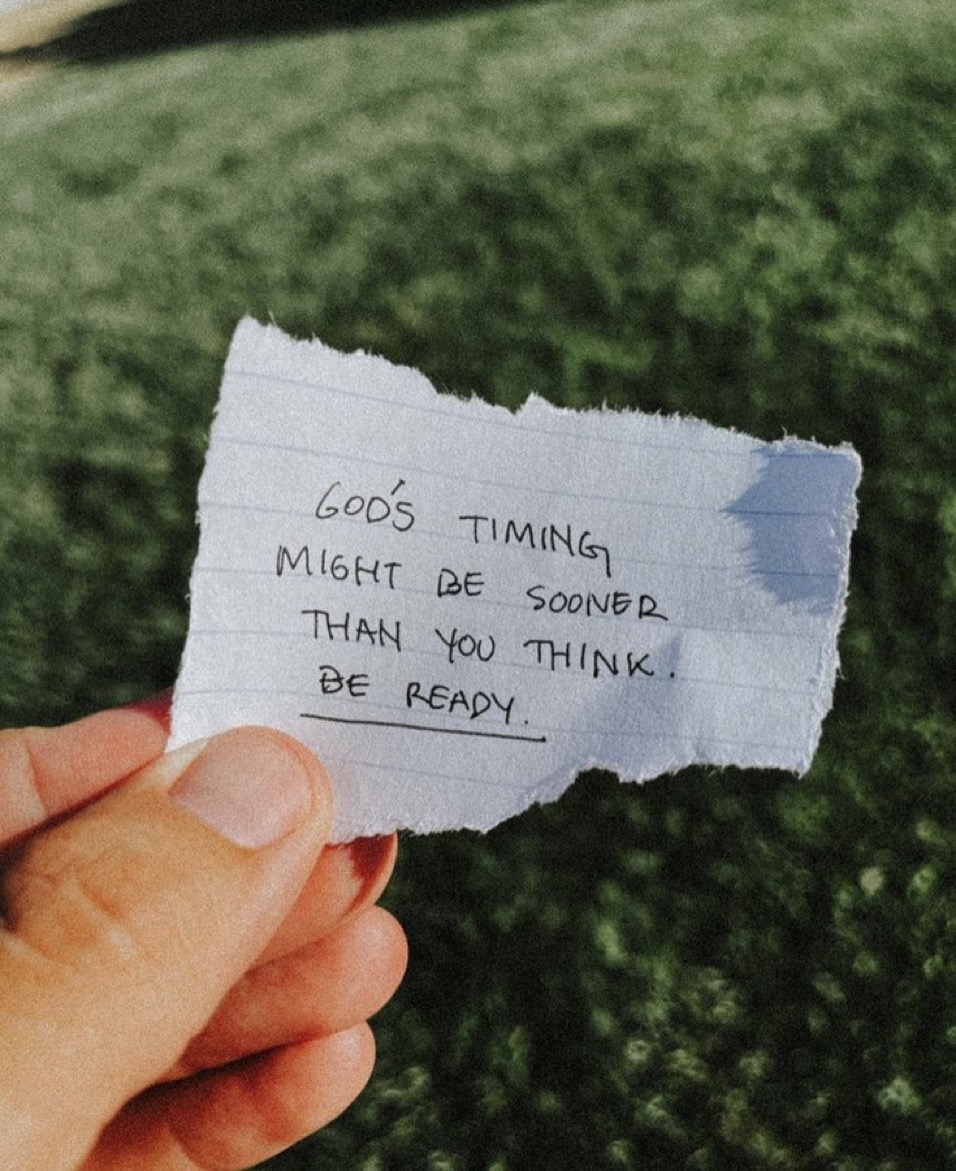 GOD'S TIMING
MIGHT BE SOONER
THAN YOU THINK.
BE READY.